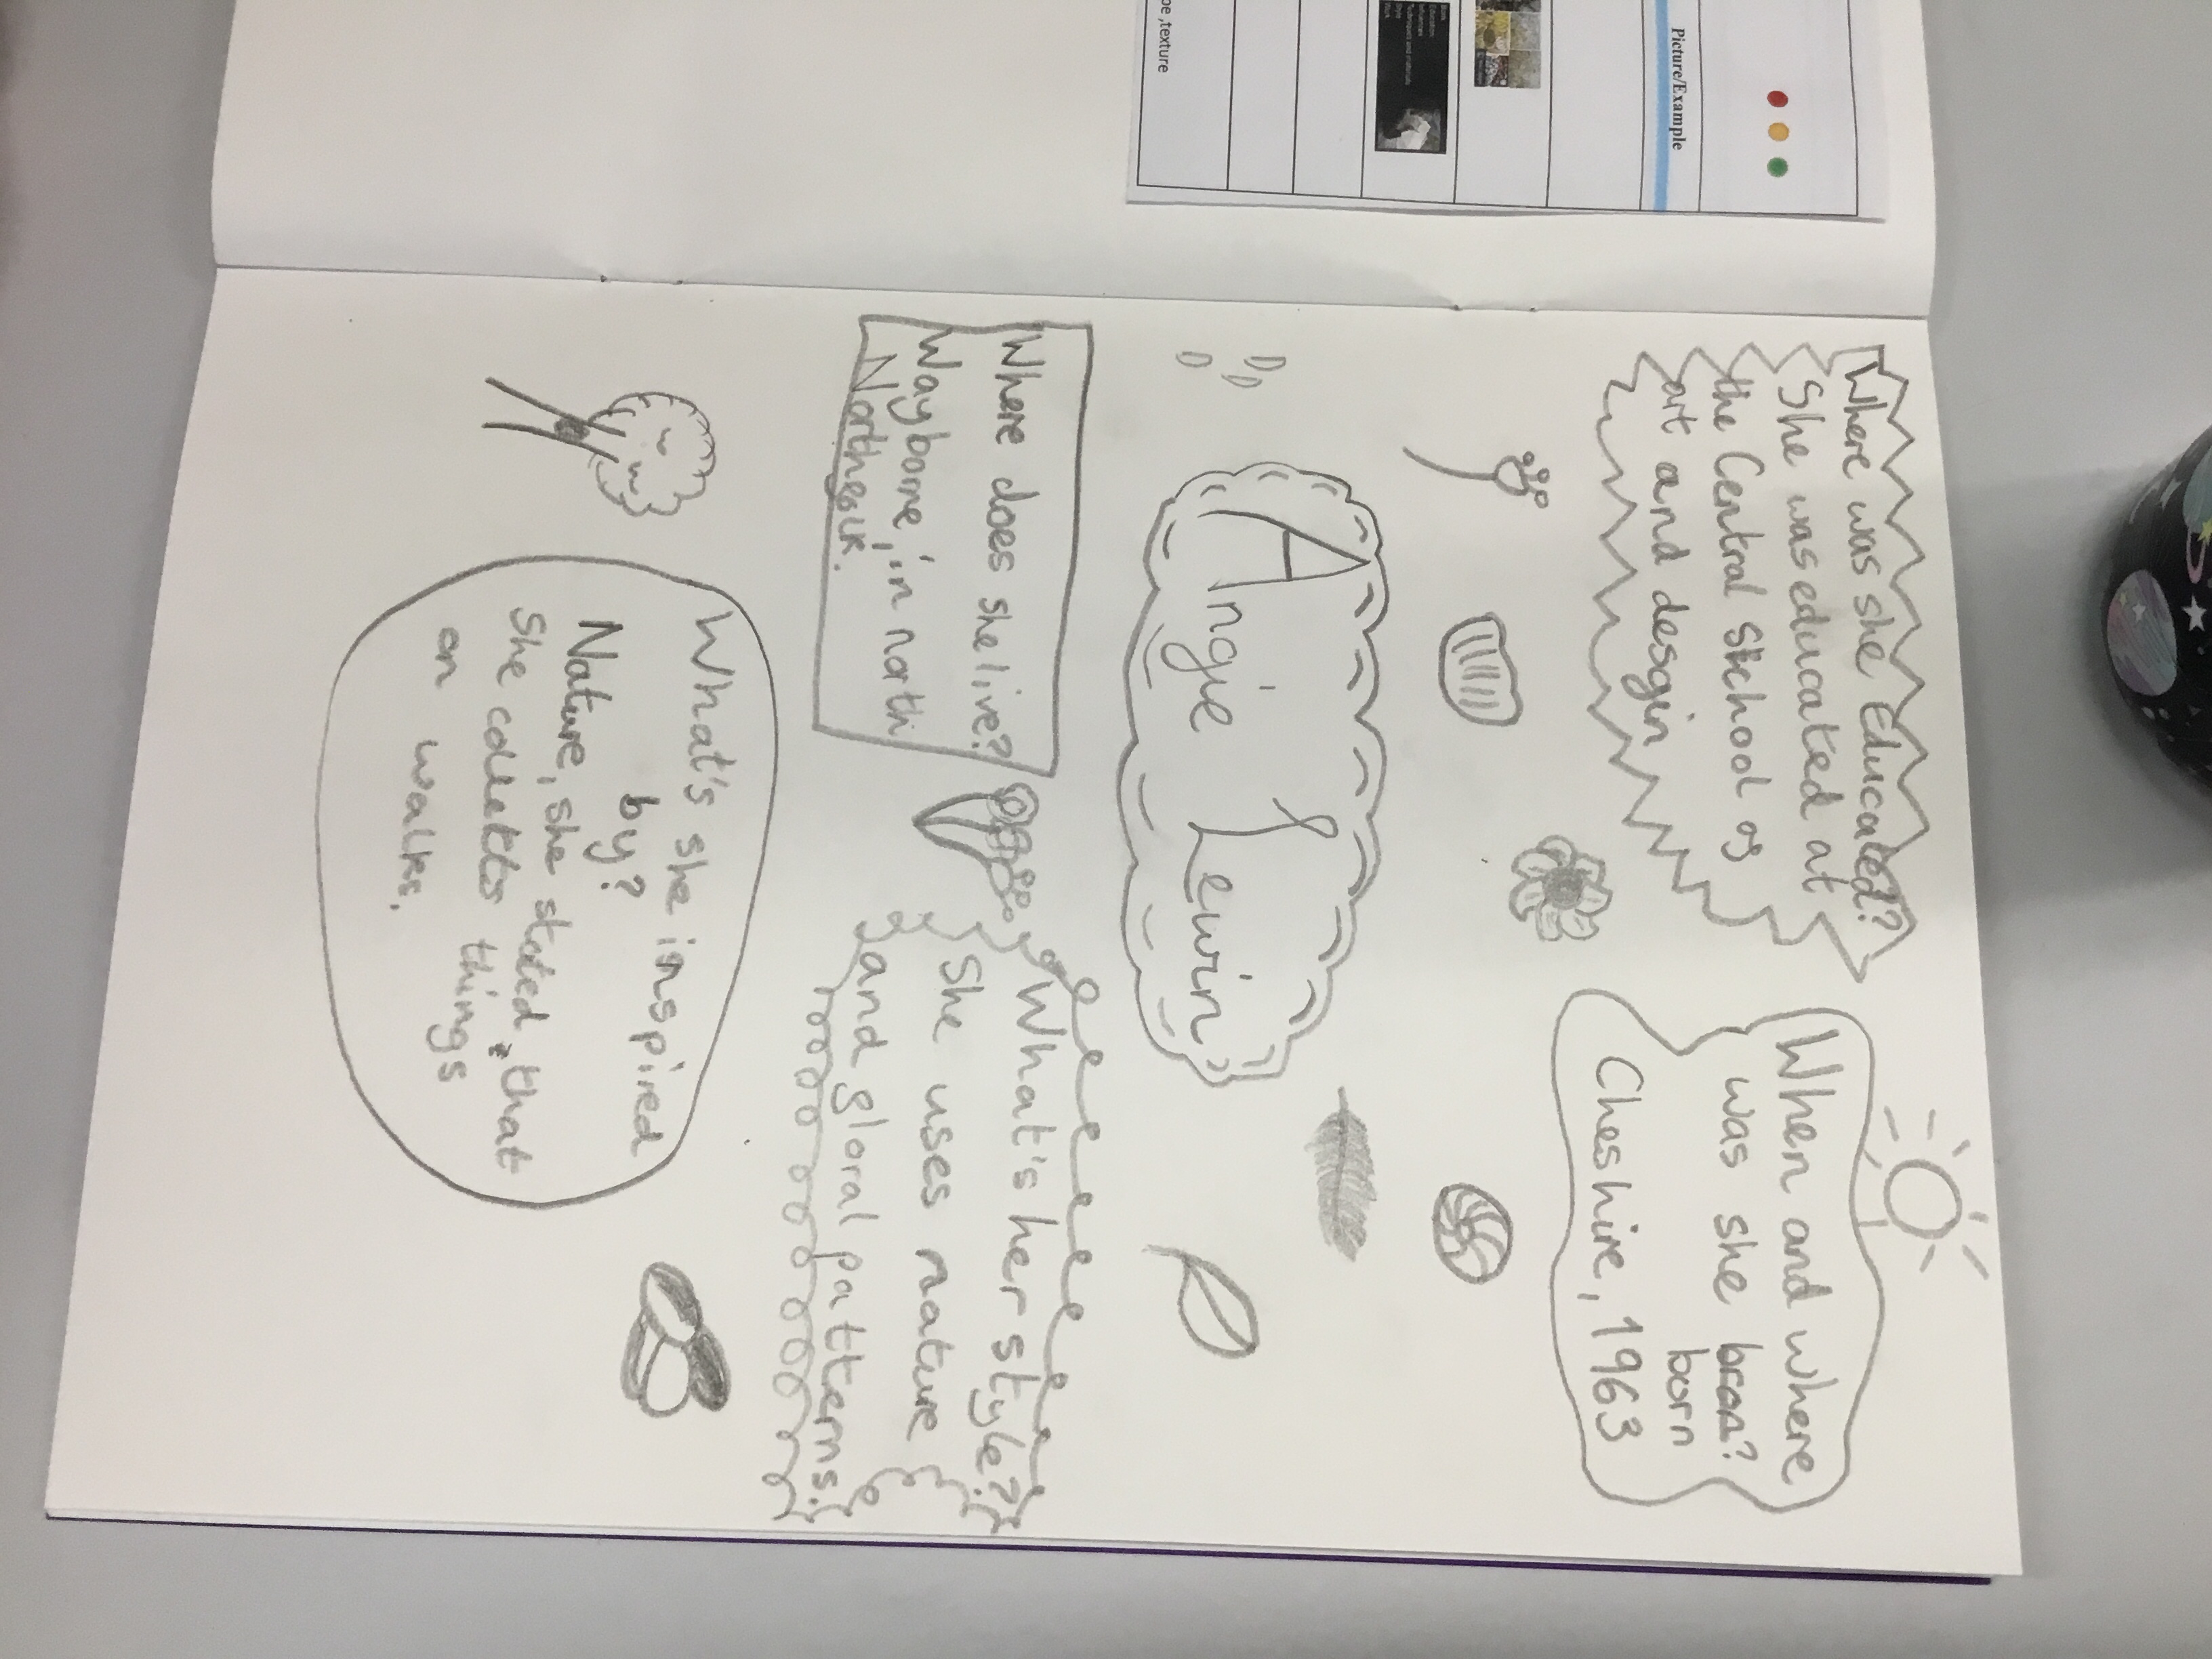 Picture/Example
pe ,texture
Where was she Educated?
She was educated at
the Central School of
art and desgin
When and where
was she bron?
born
Cheshire, 1963
Angie Lewin
Where does she live?
Wayborne, in north
Northfolk.
What's her style?
She uses nature
and floral patterns.
What's she inspired
by?
Nature, she stated that
she collects things
on walks.